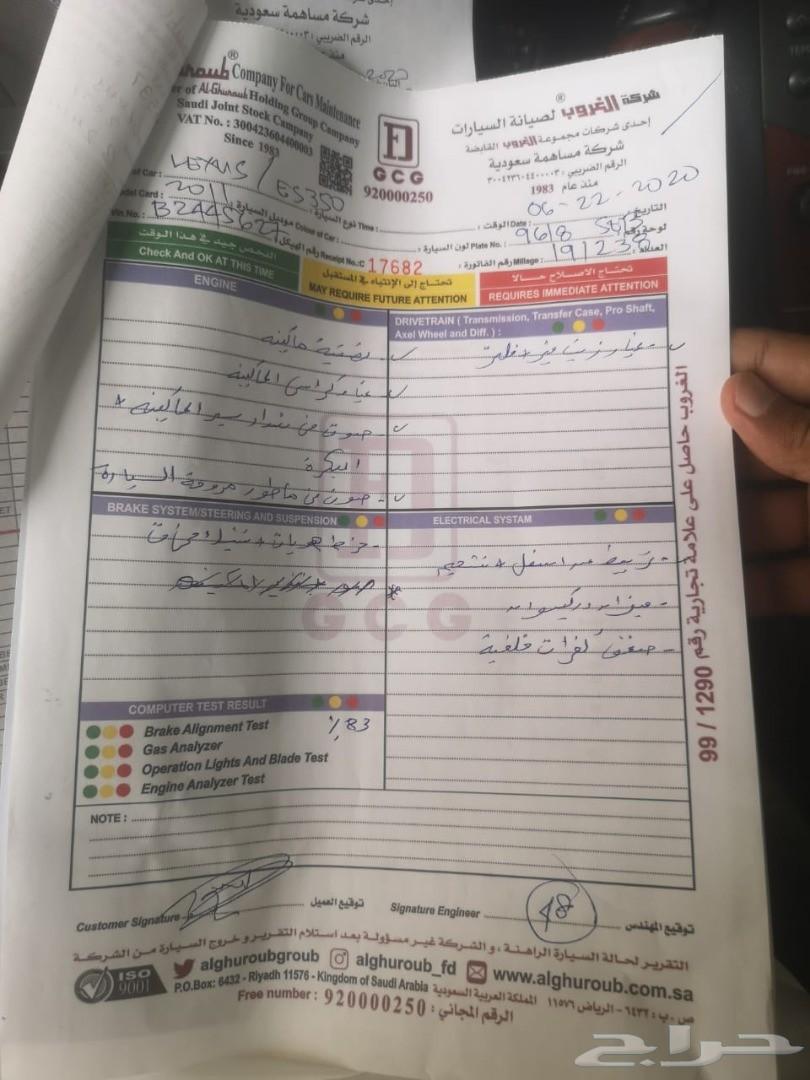 شركة مساهمة سعودية
الرقم الضريبي :
Company For Cars Maintenance
Al-Ghuroub Holding Group Company
Saudi Joint Stock Campany
VAT No. : 300423604400003
Since 1983
GCG
920000250
شركة الغروب® لصيانة السيارات
إحدى شركات مجموعة الغروب القابضة
شركة مساهمة سعودية
الرقم الضريبي : ٣٠٠٤٢٣٦٠٤٤٠٠٠٠٣
منذ عام 1983
of Car : LEXUS / ES350 نوع السيارة :
Time : الوقت :
Date : 06-22-2020 التاريخ
Model Card : 2011 موديل السيارة :
Colour of Car : لون السيارة :
Plate No. : 9618
Vin No. : رقم الهيكل
Receipt No.: C 17682 رقم الفاتورة :
Millage : 191238
الفحص جيد في هذا الوقت
Check And OK AT THIS TIME
تحتاج إلى الإنتباه في المستقبل
MAY REQUIRE FUTURE ATTENTION
تحتاج الاصلاح حالا
REQUIRES IMMEDIATE ATTENTION
ENGINE
ماكينه
كراسي الماكينه
صوت من شداد سير الماكينه +
البكرة
صوت من ماطور مروحة السيارة
DRIVETRAIN ( Transmission, Transfer Case, Pro Shaft, Axel Wheel and Diff. ) :
غيار زيت قير + فلتر
BRAKE SYSTEM/STEERING AND SUSPENSION
- خرط هوبات +
ELECTRICAL SYSTAM
COMPUTER TEST RESULT
Brake Alignment Test ٪83
Gas Analyzer
Operation Lights And Blade Test
Engine Analyzer Test
NOTE :
الغروب حاصل على علامة تجارية رقم 1290 / 99
Customer Signature توقيع العميل
Signature Engineer 48 توقيع المهندس
التقرير لحالة السيارة الراهنة ، و الشركة غير مسؤولة بعد استلام التقرير و خروج السيارة من الشركة
ISO 9001
alghuroubgroub alghuroub_fd www.alghuroub.com.sa
P.O.Box: 6432 - Riyadh 11576 - Kingdom of Saudi Arabia ص . ب : ٦٤٣٢ - الرياض ١١٥٧٦ المملكة العربية السعودية
Free number : 920000250 : الرقم المجاني
حراج